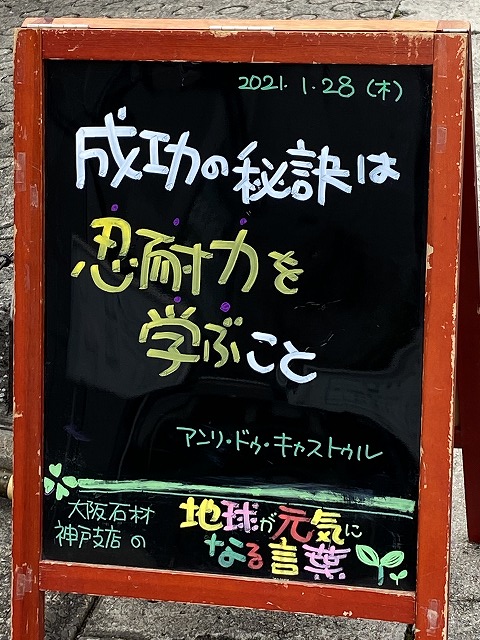 2021.1.28(木)
成功の秘訣は
忍耐力を
学ぶこと
アンリ・ドゥ・キャストゥル
大阪石材
神戸支店の
地球が元気に
なる言葉